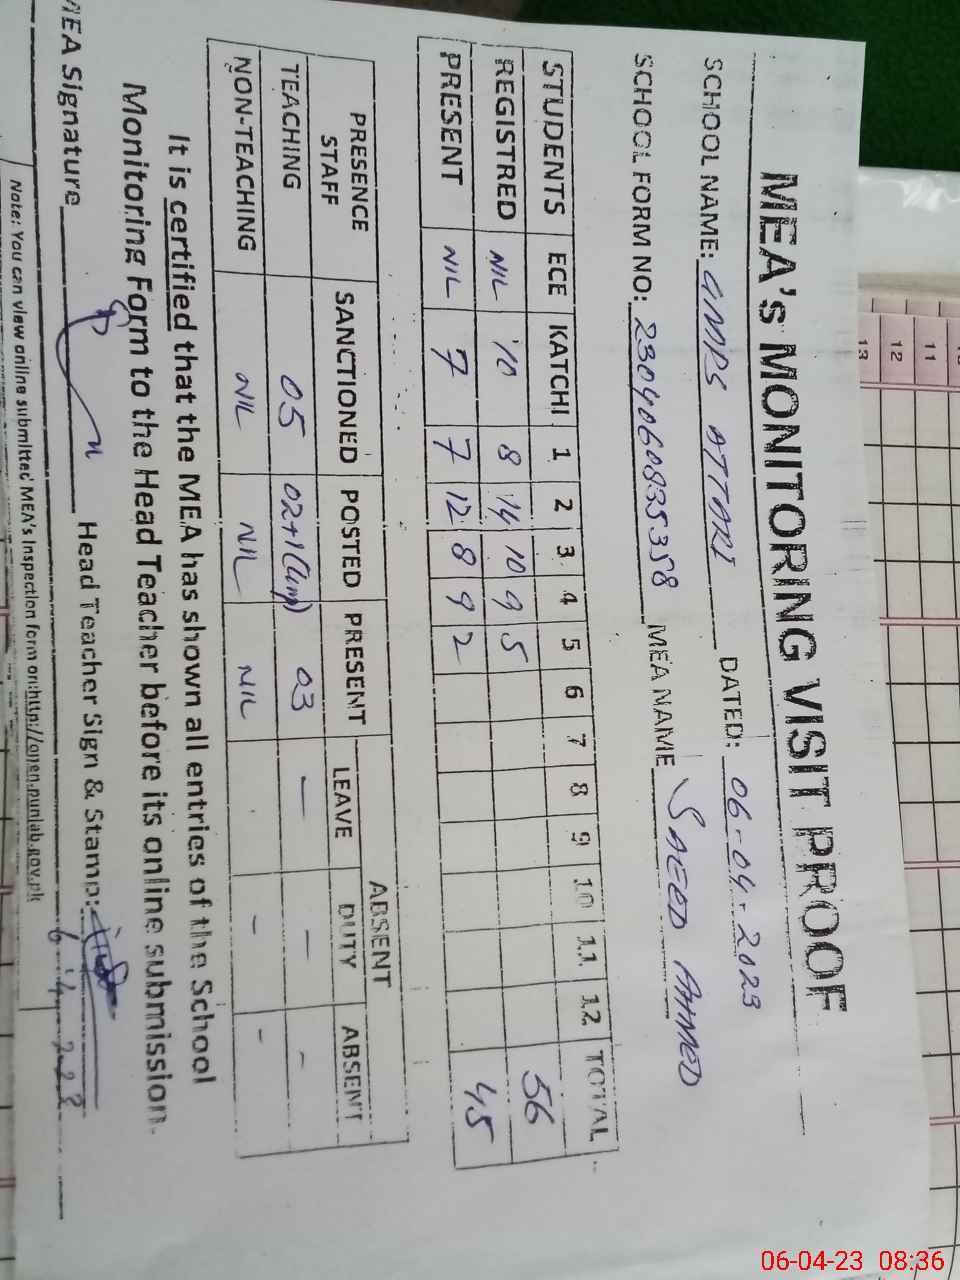 MEA's MONITORING VISIT PROOF
SCHOOL NAME: GMPS ATTARI DATED: 06-04-2023
SCHOOL FORM NO: 2304060835358 MEA NAME SAEED AHMED
STUDENTS ECE KATCHI 1 2 3 4 5 6 7 8 9 10 11 12 TOTAL
REGISTRED NIL 10 8 14 10 9 5 56
PRESENT NIL 7 7 12 8 9 2 45
PRESENCE STAFF SANCTIONED POSTED PRESENT ABSENT
LEAVE DUTY ABSENT
TEACHING 05 02+1 03 – – –
NON-TEACHING NIL NIL NIL - -
It is certified that the MEA has shown all entries of the School
Monitoring Form to the Head Teacher before its online submission.
MEA Signature Head Teacher Sign & Stamp:
Note: You can view online submitted MEA's Inspection form on:http://open.punjab.gov.pk
13
12
11
06-04-23 08:36